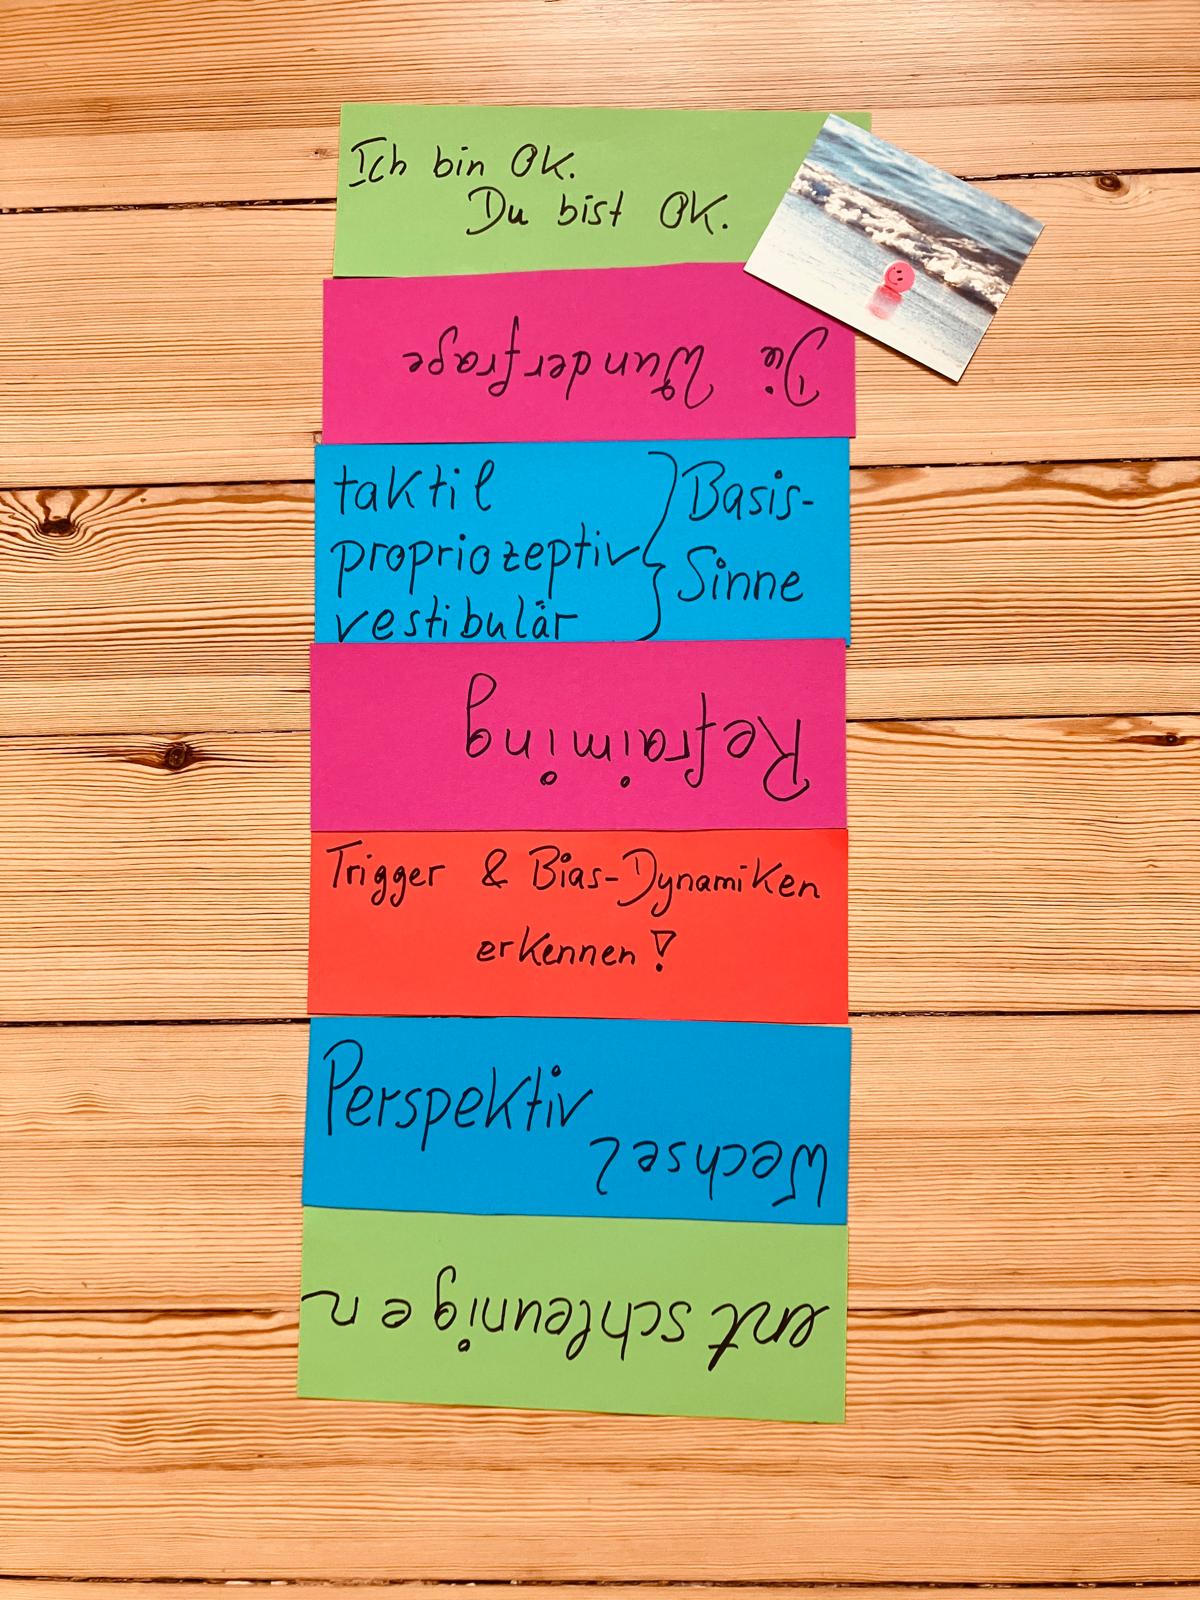 Ich bin OK.
Du bist OK.
Die Wunderfrage
taktil
propriozeptiv
vestibulär
} Basis-
Sinne
Refraiming
Trigger & Bias-Dynamiken
erkennen!
Perspektiv
wechsel
entschleunigen